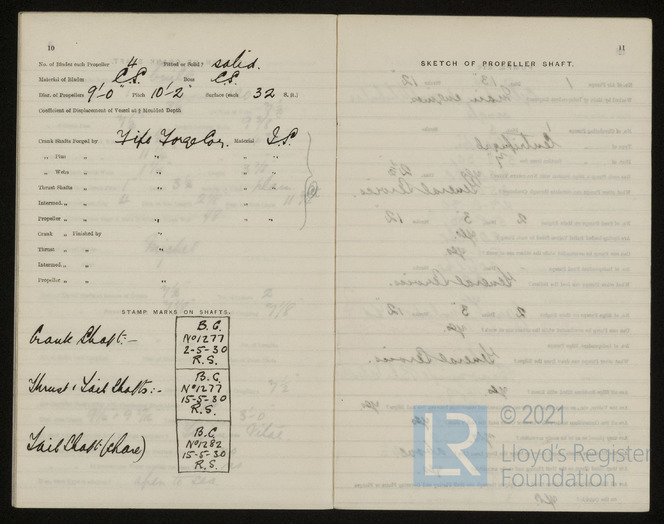 10
No. of Blades each Propeller 4 Fitted or Solid? solid.
Material of Blades C.S. Boss C.S.
Diar. of Propellers 9'-0" Pitch 10'-2" Surface (each 32 S. ft.)
Coefficient of Displacement of Vessel at ¾ Moulded Depth
Crank Shafts Forged by Fife Forge Coy. Material I.S.
" Pins " "
" Webs " "
Thrust Shafts " " "
Intermed. " " "
Propeller " " "
Crank " Finished by "
Thrust " "
Intermed. " "
Propeller " "
STAMP MARKS ON SHAFTS.
Crank Shaft:-
B.C.
No 1277
2-5-30
R.S.
Thrust & Tail Shafts:-
B.C.
No 1277
15-5-30
R.S.
Tail Shaft (Spare)
B.C.
No 1282
15-5-30
R.S.
11
SKETCH OF PROPELLER SHAFT.
LR
© 2021
Lloyd's Register
Foundation